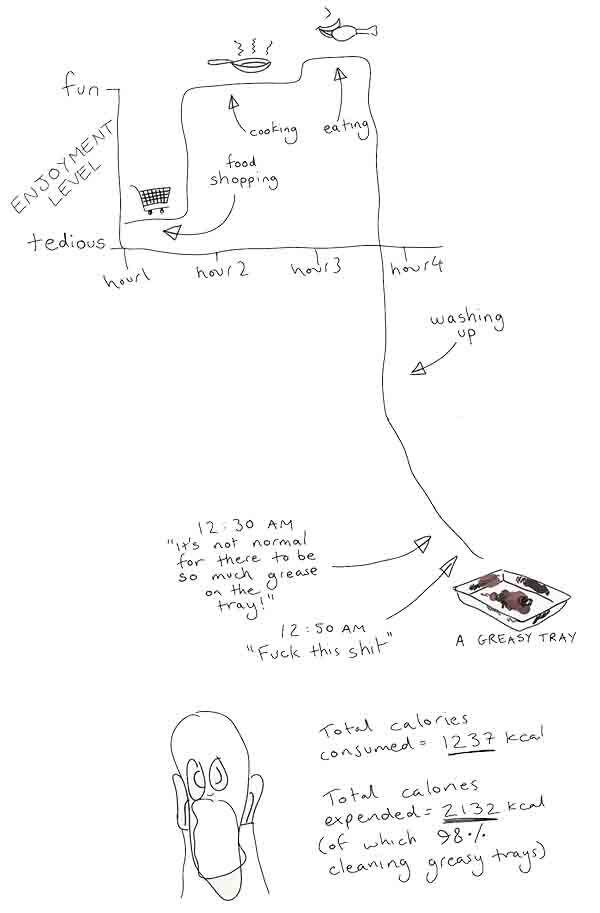 fun
ENJOYMENT
LEVEL
tedious
cooking
eating
food
shopping
hour1
hour 2
hour 3
hour 4
washing
up
12:30 AM
"it's not normal
for there to be
so much grease
on the
tray!"
12:50 AM
"Fuck this shit"
A GREASY TRAY
Total calories
consumed = 1237 kcal
Total calories
expended = 2132 kcal
(of which 98%
cleaning greasy trays)